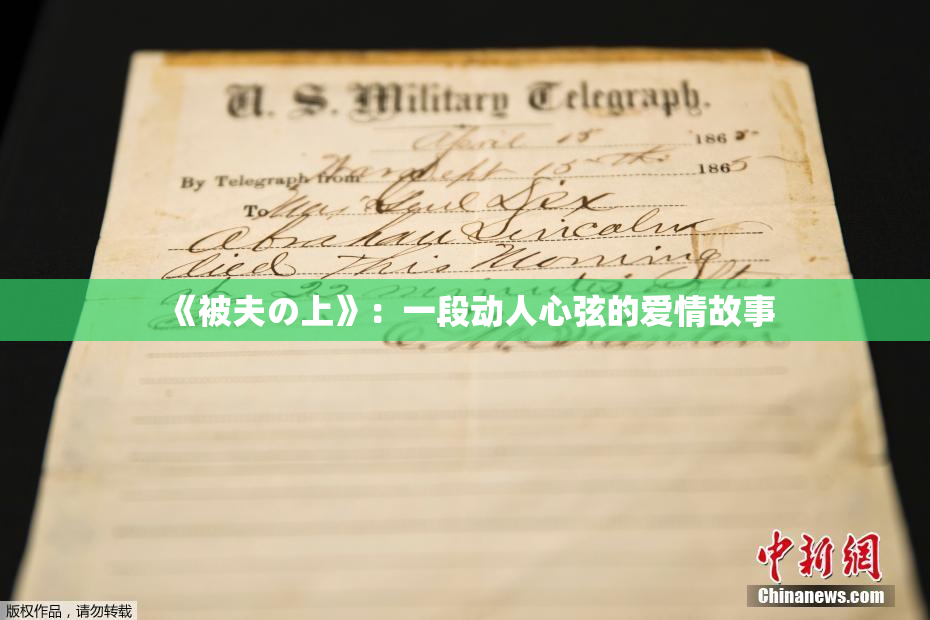 U. S. Military Telegraph.
April 15 1865
By Telegraph from War Dept 15th 1865
To Maj Genl Dix
Abraham Lincoln
died This Morning
22 minutes after
《被夫の上》：一段动人心弦的爱情故事
中新网
Chinanews.com
版权作品，请勿转载